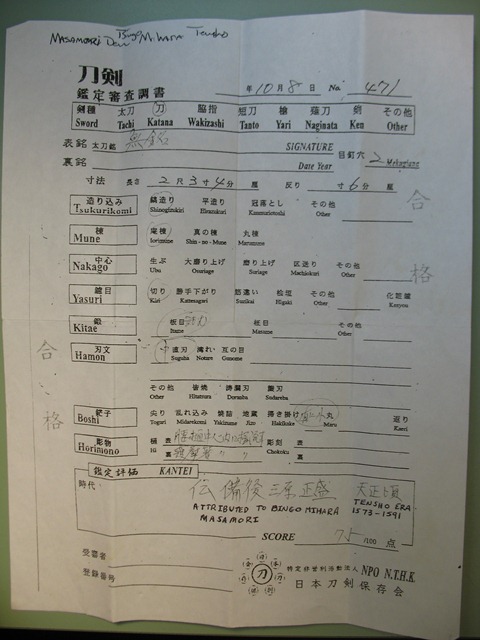 MASAMORI Den Bingo MIHARA Tensho
刀剣
鑑定審査調書
年 10 月 8 日 No. 471
剣種 太刀 刀 脇指 短刀 槍 薙刀 剣 その他
Sword Tachi Katana Wakizashi Tanto Yari Naginata Ken Other
表銘 太刀銘 無銘 SIGNATURE 目釘穴 2 Mekugiana
裏銘 Date Year
寸法 長さ 2 尺 3 寸 4 分 厘 反り 寸 6 分 厘
造り込み 鎬造り 平造り 冠落とし その他
Tsukurikomi Shinogizukuri Hirazukuri Kanmuriotoshi Other
合
棟 庵棟 真の棟 丸棟
Mune Iorimune Shin-no-Mune Marumune
中心 生ぶ 大磨り上げ 磨り上げ 区送り その他
Nakago Ubu Osuriage Suriage Machiokuri Other
格
鑢目 切り 勝手下がり 筋違い 桧垣 その他 化粧鑢
Yasuri Kiri Kattesagari Sujikai Higaki Other Kesyou
鍛 板目 柾目 その他
Kitae Itame Masame Other
刃文 直刃 湾れ 互の目
Hamon Suguha Notare Gunome
合
その他 皆焼 涛瀾刃 簾刃
Other Hitatsura Doranba Sudareba
格
鋩子 尖り 乱れ込み 焼詰 地蔵 掃き掛け 丸 返り
Boshi Togari Midarekomi Yakizume Jizo Hakikake Maru Kaeri
彫物 樋 表 彫刻 表
Horimono Hi 裏 Chokoku 裏
鑑定評価 KANTEI
時代: 伝 備後三原正盛 天正頃
ATTRIBUTED TO BINGO MIHARA MASAMORI
TENSHO ERA 1573-1591
SCORE 75 /100 点
受審者
登録番号
刀
特定非営利活動法人 NPO N.T.H.K.
日本刀剣保存会